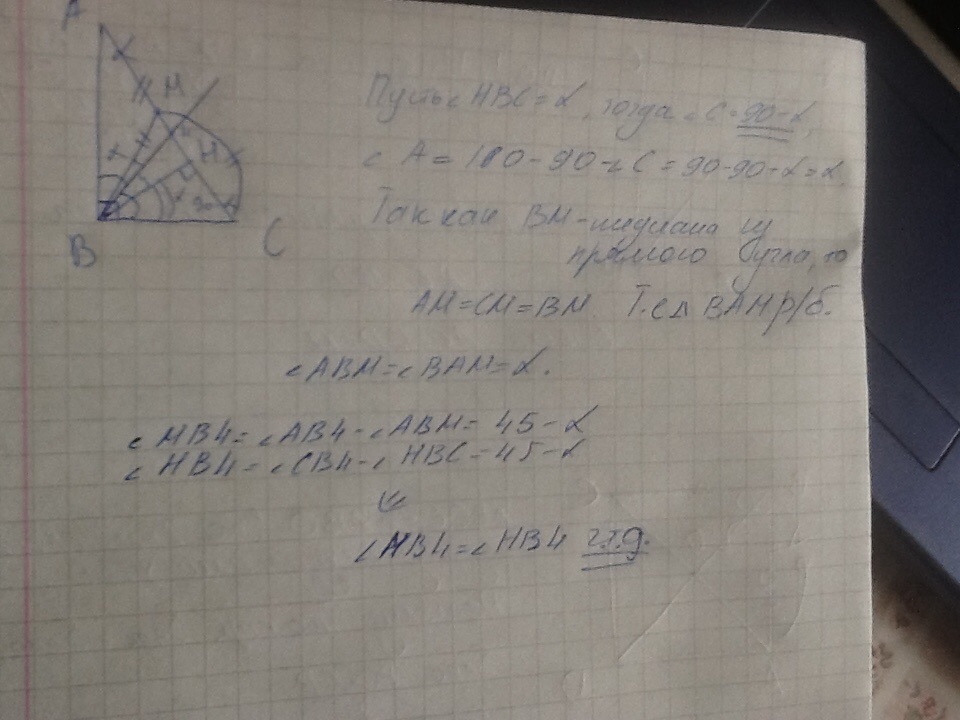 A
M
H
B
C
Пусть ∠HBC=α, тогда ∠C=90-α,
∠A=180-90-∠C=90-90-α=α.
Так как BM-медиана из
прямого угла, то
AM=CM=BM Т.е Δ BAM р/б.
∠ABM=∠BAM=α.
∠MB4=∠AB4-∠ABM=45-α
∠HB4=∠CB4-∠HBC=45-α
⇓
∠MB4=∠HB4 ч.т.д.